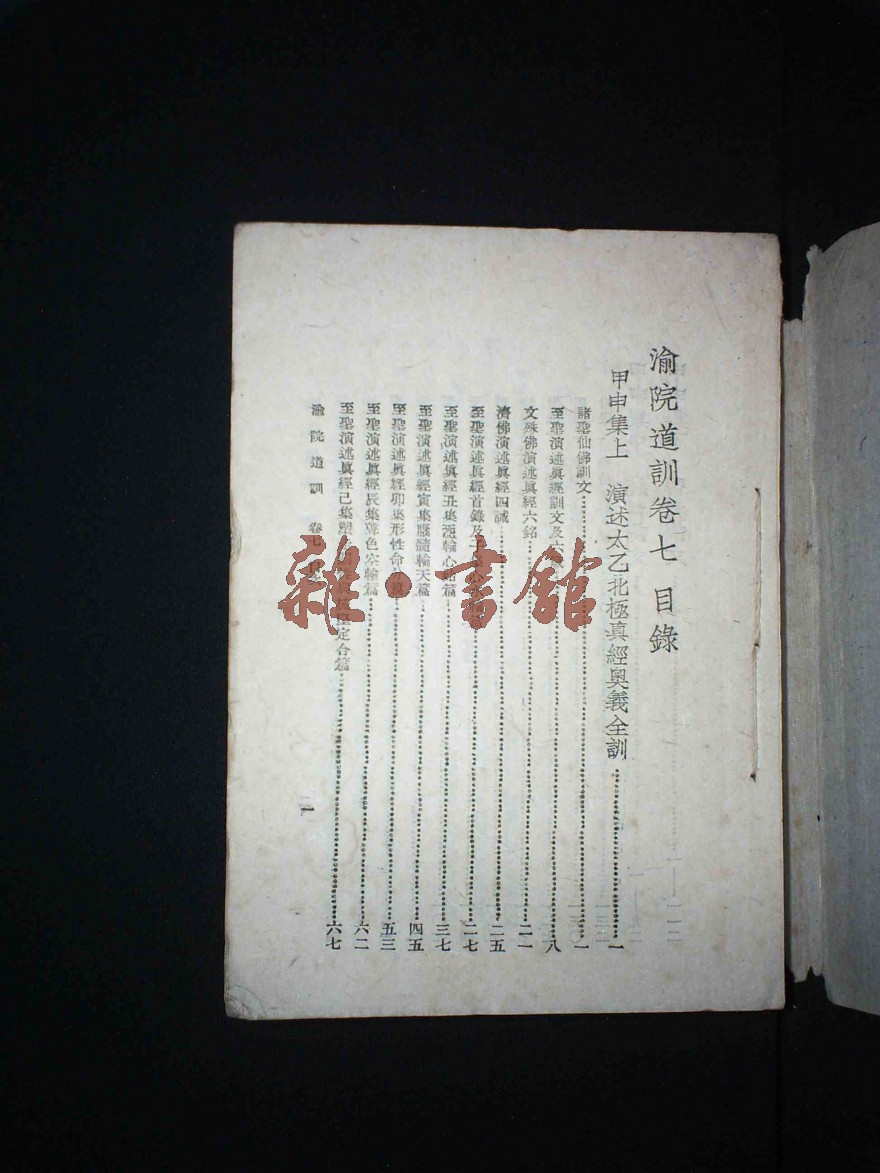 渝院道訓卷七 目錄
甲申集上 演述太乙北極真經奧義全訓 一
諸聖仙佛訓文 一
至聖演述眞經訓文及六 八
文殊佛演述眞經六銘 二一
濟佛演述眞經四誡 二五
至聖演述眞經首錄及子集心 二七
至聖演述眞經丑集 輪心 篇 三七
至聖演述眞經寅集腦髓輪天篇 四五
至聖演述眞經卯集形性命 篇 五三
至聖演述眞經辰集 色 輪篇 六二
至聖演述眞經巳集 定合篇 六七
渝院道訓 卷七 目 一
雜·書館